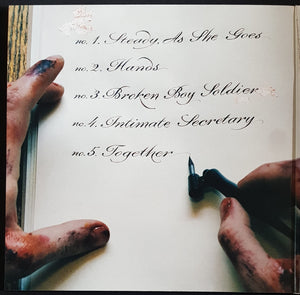 no. 1. Steady, As She Goes
no. 2. Hands
no. 3. Broken Boy Soldier
no. 4. Intimate Secretary
no. 5. Together